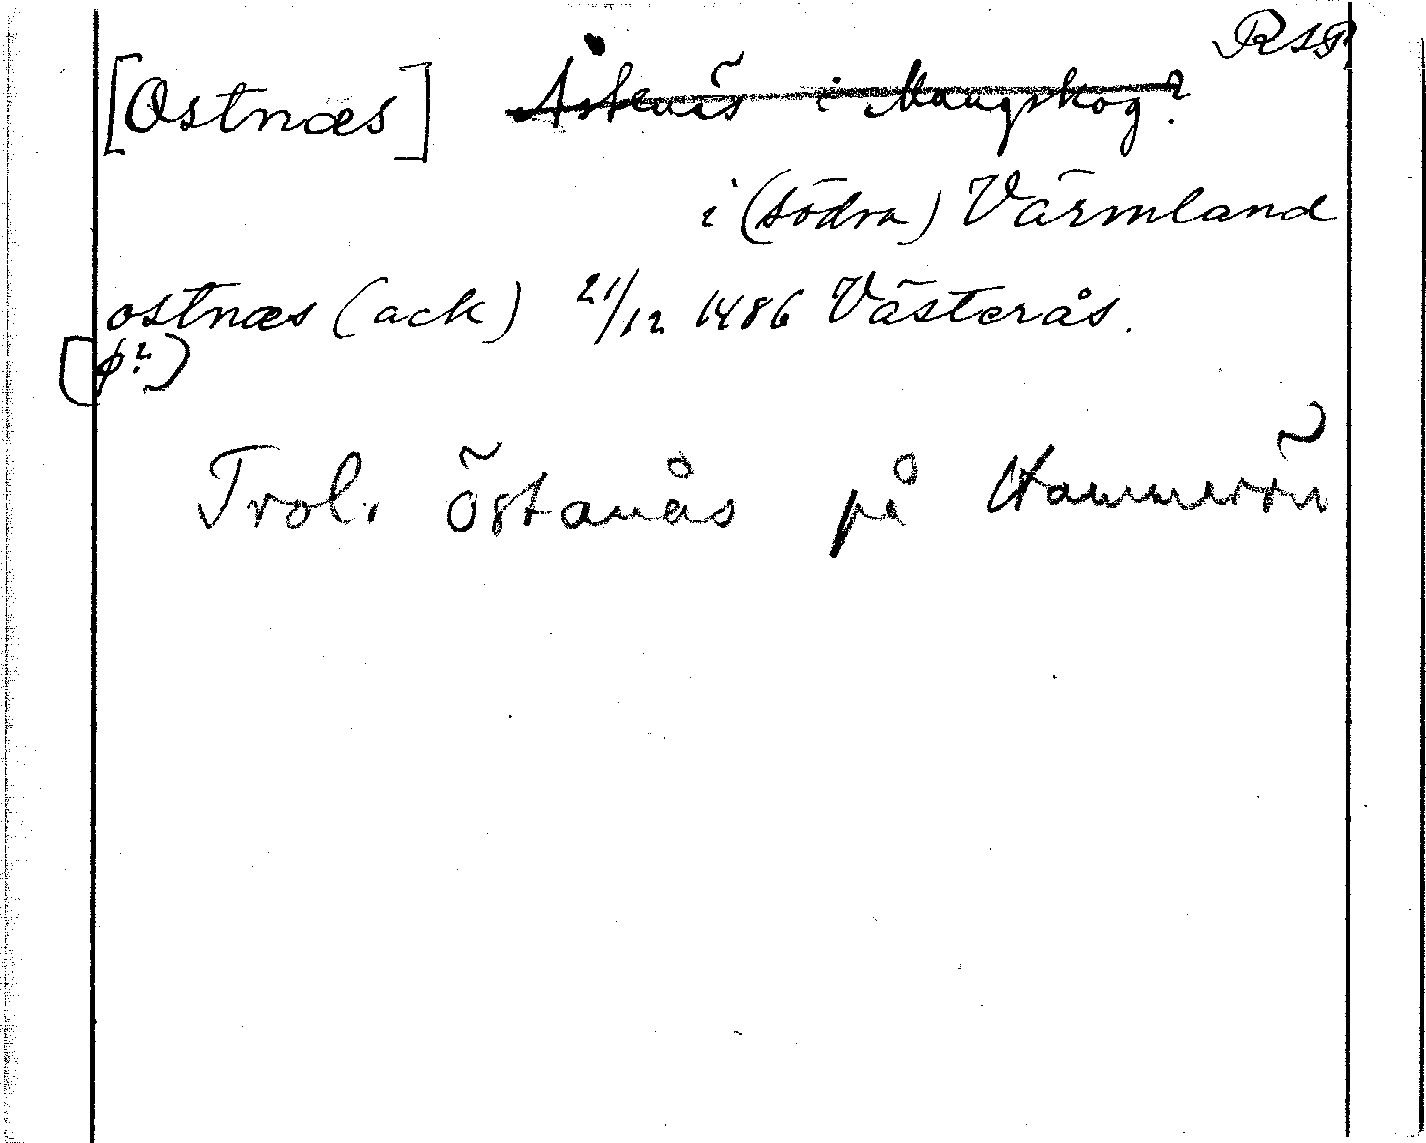 RSP
[Ostnæs] Åstenäs i Mangskog?
i (södra) Värmland
ostnæs (ack) 21/12 1486 Västerås.
(ø?)
Trol. Östanås på Hammarön